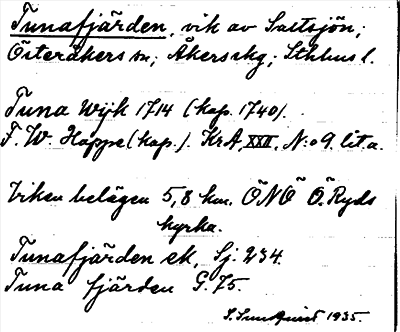 Tunafjärden, vik av Saltsjön;
Österåkers sn; Åkers skg; Sthlms l.
Tuna Wijk 1714 (kop. 1740).
F. W. Hoppe (kop.). KrA, XXII, N:o 9. lit a.
Viken belägen 5,8 km. ÖNÖ Ö. Ryds
kyrka.
Tunafjärden ek, Sj. 234.
Tuna fjärden G. 75.
S. Sundquist 1935.